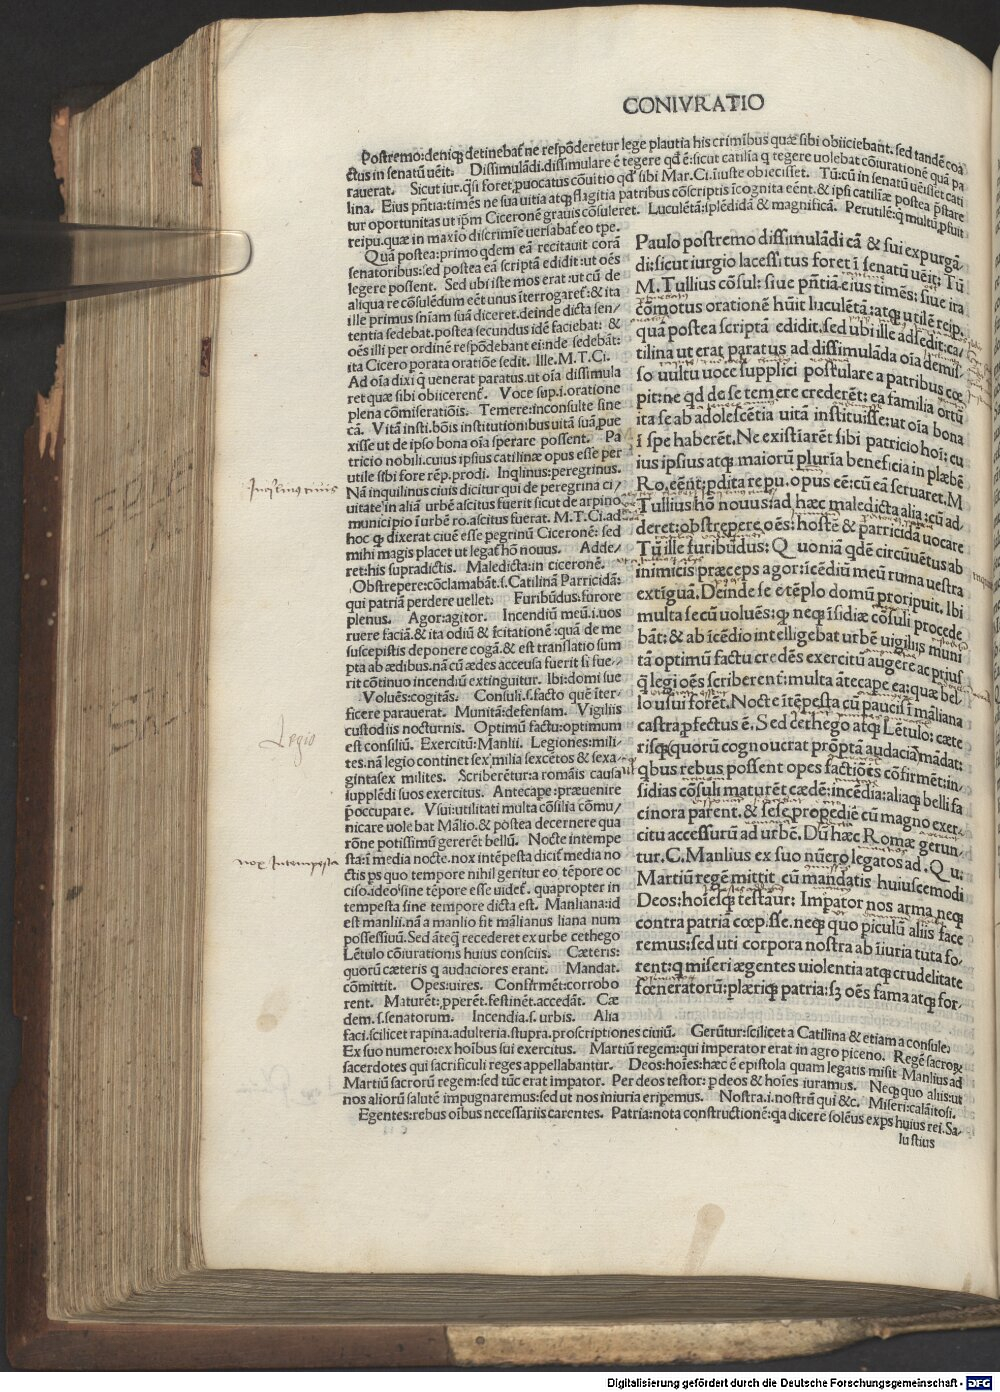 CONIVRATIO
Postremo:deniq; detinebat̃ ne respõderetur lege plautia his crimĩbus quæ sibi obiiciebant. sed tandẽ coa
ctus in senatũ uẽit. Dissimulãdi.dissimulare ẽ tegere qd ẽ:sicut catilĩa q tegere uolebat cõiurationẽ quã pa
rauerat. Sicut iur.q̃si foret ꝓuocatus cõuitio qd sibi Mar.Ci.iuste obiecisset. Tũ:cũ in senatũ uẽisset cati
lina. Eius pñtia:timẽs ne sua uitia atq; flagitia patribus cõscriptis ĩcognita eẽnt.& ipsi catilĩæ postea p̃stare
tur oportunitas ut ip̃m Ciceronẽ grauis cõsuleret. Luculẽtã:splẽdidã & magnificã. Perutilẽ:q multũ ꝓfuit
reipu.quæ in maxĩo discrimĩe uersabat̃ eo tpe.
Quã postea:primo qdem eã recitauit corã
senatoribus:sed postea eã scriptã edidit:ut oẽs
legere possent. Sed ubi iste mos erat:ut cũ de
aliqua re cõsulẽdum eẽt unus ĩterrogaret̃:& ita
ille primus sñiam suã diceret.deinde dicta sen/
tentia sedebat.postea secundus idẽ faciebat: &
oẽs illi per ordinẽ respõdebant ei:nde sedebãt:
ita Cicero porata oratiõe sedit. Ille.M.T.Ci.
Ad oĩa dixi q uenerat paratus.ut oĩa dissimula
ret quæ sibi obiicerent̃. Voce sup.i.oratione
plena cõmiseratiõis. Temere:inconsulte sine
cã. Vitã insti.bõis institutionibus uitã suã ꝓue
xisse ut de ipso bona oĩa sperare possent. Pa
tricio nobili.cuius ipsius catilinæ opus esse per
utile sibi fore rẽp.prodi. Inqlinus:peregrinus.
Nã inquilinus ciuis dicitur qui de peregrina ci/
uitate in aliã urbẽ ascitus fuerit sicut de arpino
municipio ĩ urbẽ ro.ascitus fuerat. M.T.Ci.ad
hoc q dixerat ciuẽ esse pegrinũ Ciceronẽ: sed
mihi magis placet ut legat̃ hõ nouus. Adde/
ret:his supradictis. Maledicta:in ciceronẽ.
Obstrepere:cõclamabãt.s.Catilinã Parricidã:
qui patriã perdere uellet. Furibũdus:furore
plenus. Agor:agitor. Incendiũ meũ.i.uos
ruere faciã.& ita odiũ & ĩcitationẽ :quã de me
suscepistis deponere cogã.& est translatio sum
pta ab ædibus.nã cũ ædes accensa fuerit si fue/
rit cõtinuo incendiũ extinguitur. Ibi:domi suæ
Voluẽs:cogitãs. Consuli.s.facto quẽ ĩter-
ficere parauerat. Munitã:defensam. Vigiliis
custodiis nocturnis. Optimũ factu:optimum
est consiliũ. Exercitũ:Manlii. Legiones:mili/
tes.nã legio continet sex milia sexcẽtos & sexa/
gintasex milites. Scriberẽtur:a romãis causa
supplẽdi suos exercitus. Antecape:præuenire
p̃occupare. Vsui:utilitati multa cõsilia cõmu/
nicare uolebat Mãlio.& postea decernere qua
rõne potissimũ gererẽt bellũ. Nocte intempe
sta:ĩ media nocte.nox intẽpesta dicit̃ media no
ctis ps quo tempore nihil geritur eo tẽpore oc
ciso.ideo sine tẽpore esse uidet̃. quapropter in
tempesta sine tempore dicta est. Manliana:id
est manlii.nã a manlio fit mãlianus liana num
possessiuũ.Sed ãteq̃ recederet ex urbe cethego
Lẽtulo cõiurationis huius consciis. Cæteris:
quorũ cæteris q audaciores erant. Mandat.
cõmittit. Opes:uires. Confirmẽt:corrobo
rent. Maturẽt:pperẽt.festinẽt.accedãt. Cæ
dem.s.senatorum. Incendia.s.urbis. Alia
faci.scilicet rapina.adulteria.stupra.proscriptiones ciuiũ. Gerũtur:scilicet a Catilina & etiam a consule.
Ex suo numero:ex hoĩbus sui exercitus. Martiũ regem:qui imperator erat in agro piceno. Regẽ sacroꝝ
sacerdotes qui sacrificuli reges appellabantur. Deos:hoĩes:hæc ẽ epistola quam legatis misit Manlius ad
Martiũ sacrorũ regem:sed tũc erat impator. Per deos testor: p deos & hoĩes iuramus. Neq; quo aliis:ut
nos aliorũ salutẽ impugnaremus:sed ut nos iniuria eripemus. Nostra.i.nostrũ qui &c. Miseri:calãitosi.
Egentes:rebus oĩbus necessariis carentes. Patria:nota constructionẽ:qa dicere solẽus exps huius rei.Sa-
lustius
Paulo postremo dissimulãdi cã & sui expurgã-
di:sicut iurgio lacessitus foret ĩ senatũ uẽit: Tũ
M.Tullius cõsul: siue pñtiã eius timẽs: siue ira
cõmotus orationẽ hũit luculẽtã:atq; utilẽ reip.
quã postea scriptã edidit.sed ubi ille adsedit:ca/
tilina ut erat paratus ad dissimulãda oĩa demis/
so uultu uoce supplici postulare a patribus cœ
pit:ne qd de se temere crederẽt: ea familia ortũ
ita se ab adolescẽtia uitã instituisse:ut oĩa bona
ĩ spe haberẽt.Ne existĩarẽt sibi patricio hoĩ: cu
ius ipsius atq; maiorũ plurĩa beneficia in plæbẽ
Ro.eẽnt:pdita repu.opus eẽ:cũ eã seruaret.M
Tullius hõ nouus:ad hæc maledicta alia:cũ ad/
deret:obstrepere oẽs: hostẽ & parricidã uocare
Tũ ille furibũdus: Quoniã qdẽ circũuẽtus ab
inimicis præceps agor:ĩcẽdiũ meũ ruina uestra
extĩguã.Deinde se e tẽplo domũ proripuit. Ibi
multa secũ uoluẽs:q neq; ĩsidiæ cõsuli procede
bãt:& ab ĩcẽdio intelligebat urbẽ uigiliis muni
tã optimũ factu credẽs exercitũ augere ac prius
q̃ legiõẽs scriberent:multa ãtecape ea:quæ bel-
lo usui forẽt.Nocte ĩtẽpesta cũ paucis ĩ mãliana
castra pfectus ẽ.Sed cethego atq; Lẽtulo:cæte
risq; quorũ cognouerat prõptã audaciã mãdat:
qbus rebus possent opes factiõẽs cõfirmẽt:in-
sidias cõsuli maturẽt cædẽ:incẽdia:aliaq; belli fa
cinora parent.& sese propediẽ cũ magno exer-
citu accessurũ ad urbẽ. Dũ hæc Romæ gerun-
tur.C.Manlius ex suo nũero legatos ad.Q u.
Martiũ regẽ mittit cũ mandatis huiuscemodi
Deos:hoĩesq; testaur: Impator nos arma neq;
contra patriã cœpisse.neq; quo piculũ aliis face
remus:sed uti corpora nostra ab ĩiuria tuta fo/
rent:q miseri ægentes uiolentia atq; crudelitate
fœneratorũ:plæriq; patria:sꝫ oẽs fama atq; for
Inqlinus ciuis
Legio
nox Intempesta
Digitalisierung gefördert durch die Deutsche Forschungsgemeinschaft - DFG